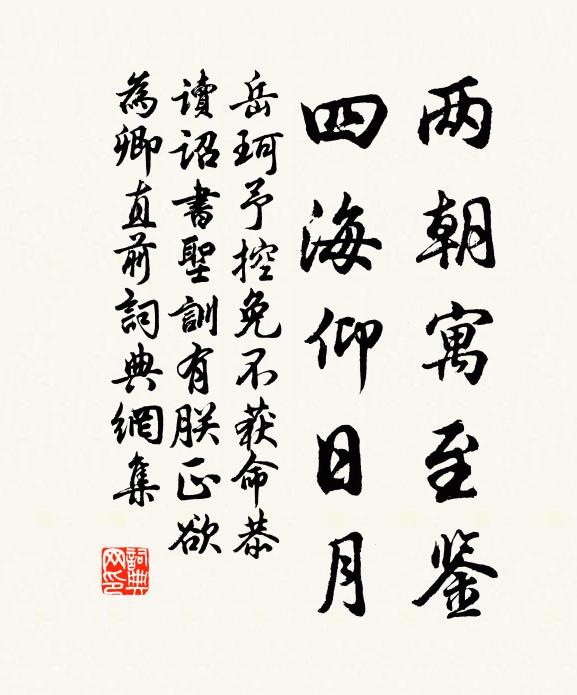 两朝寓至鉴
四海仰日月
岳珂予控免不获命恭
讀詔書聖訓有朕正欲
為卿直前詞典網集
詞典网印